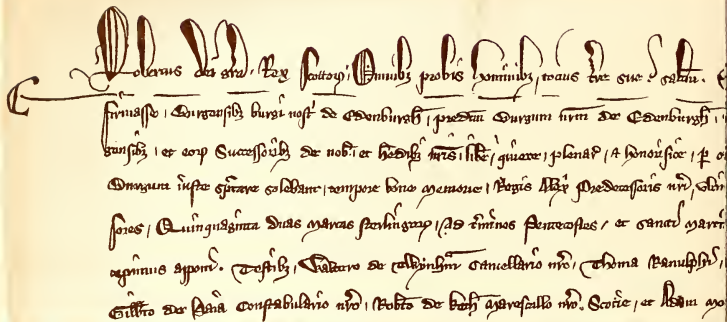 Robertus dei gra . Rex Scottoꝝ . Omnibȝ probis hominibȝ , tocius tre sue , saltm .
firmasse , Burgensibȝ burgi nost de Edenburgh , predcm Burgum nrm de Edenburgh ,
gensibȝ , et eoꝝ Successoribȝ de nob , et hedibȝ nris , libe , quiete , plenar , & honorifice , ꝑ o
Burgum iuste spectare solebant , tempore bone memorie , Regis Alexi Predecessoris nri ,
sores , Quinquaginta duas marcas sterlingoꝝ , Ad tminos Pentecostes , et sancti marti
ceprimus apponi . Testibȝ , Waltero de Twynham Cancellario nro , Thoma Ranulphi ,
Gillbto de Haia Constabulario nro , Robto de keth marescallo nro . Scocie , et Adam mo